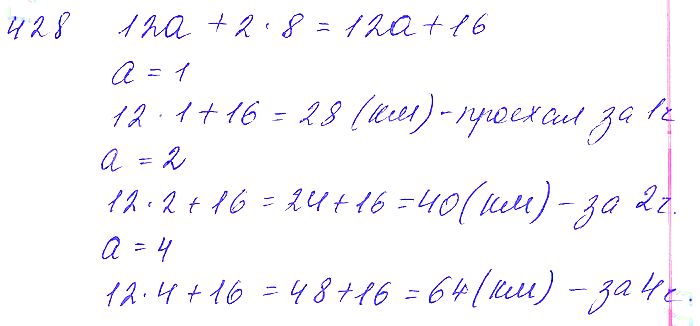 428 12a + 2 · 8 = 12a + 16
a = 1
12 · 1 + 16 = 28 (км) - проехал за 1ч
a = 2
12 · 2 + 16 = 24 + 16 = 40 (км) - за 2ч.
a = 4
12 · 4 + 16 = 48 + 16 = 64 (км) - за 4ч